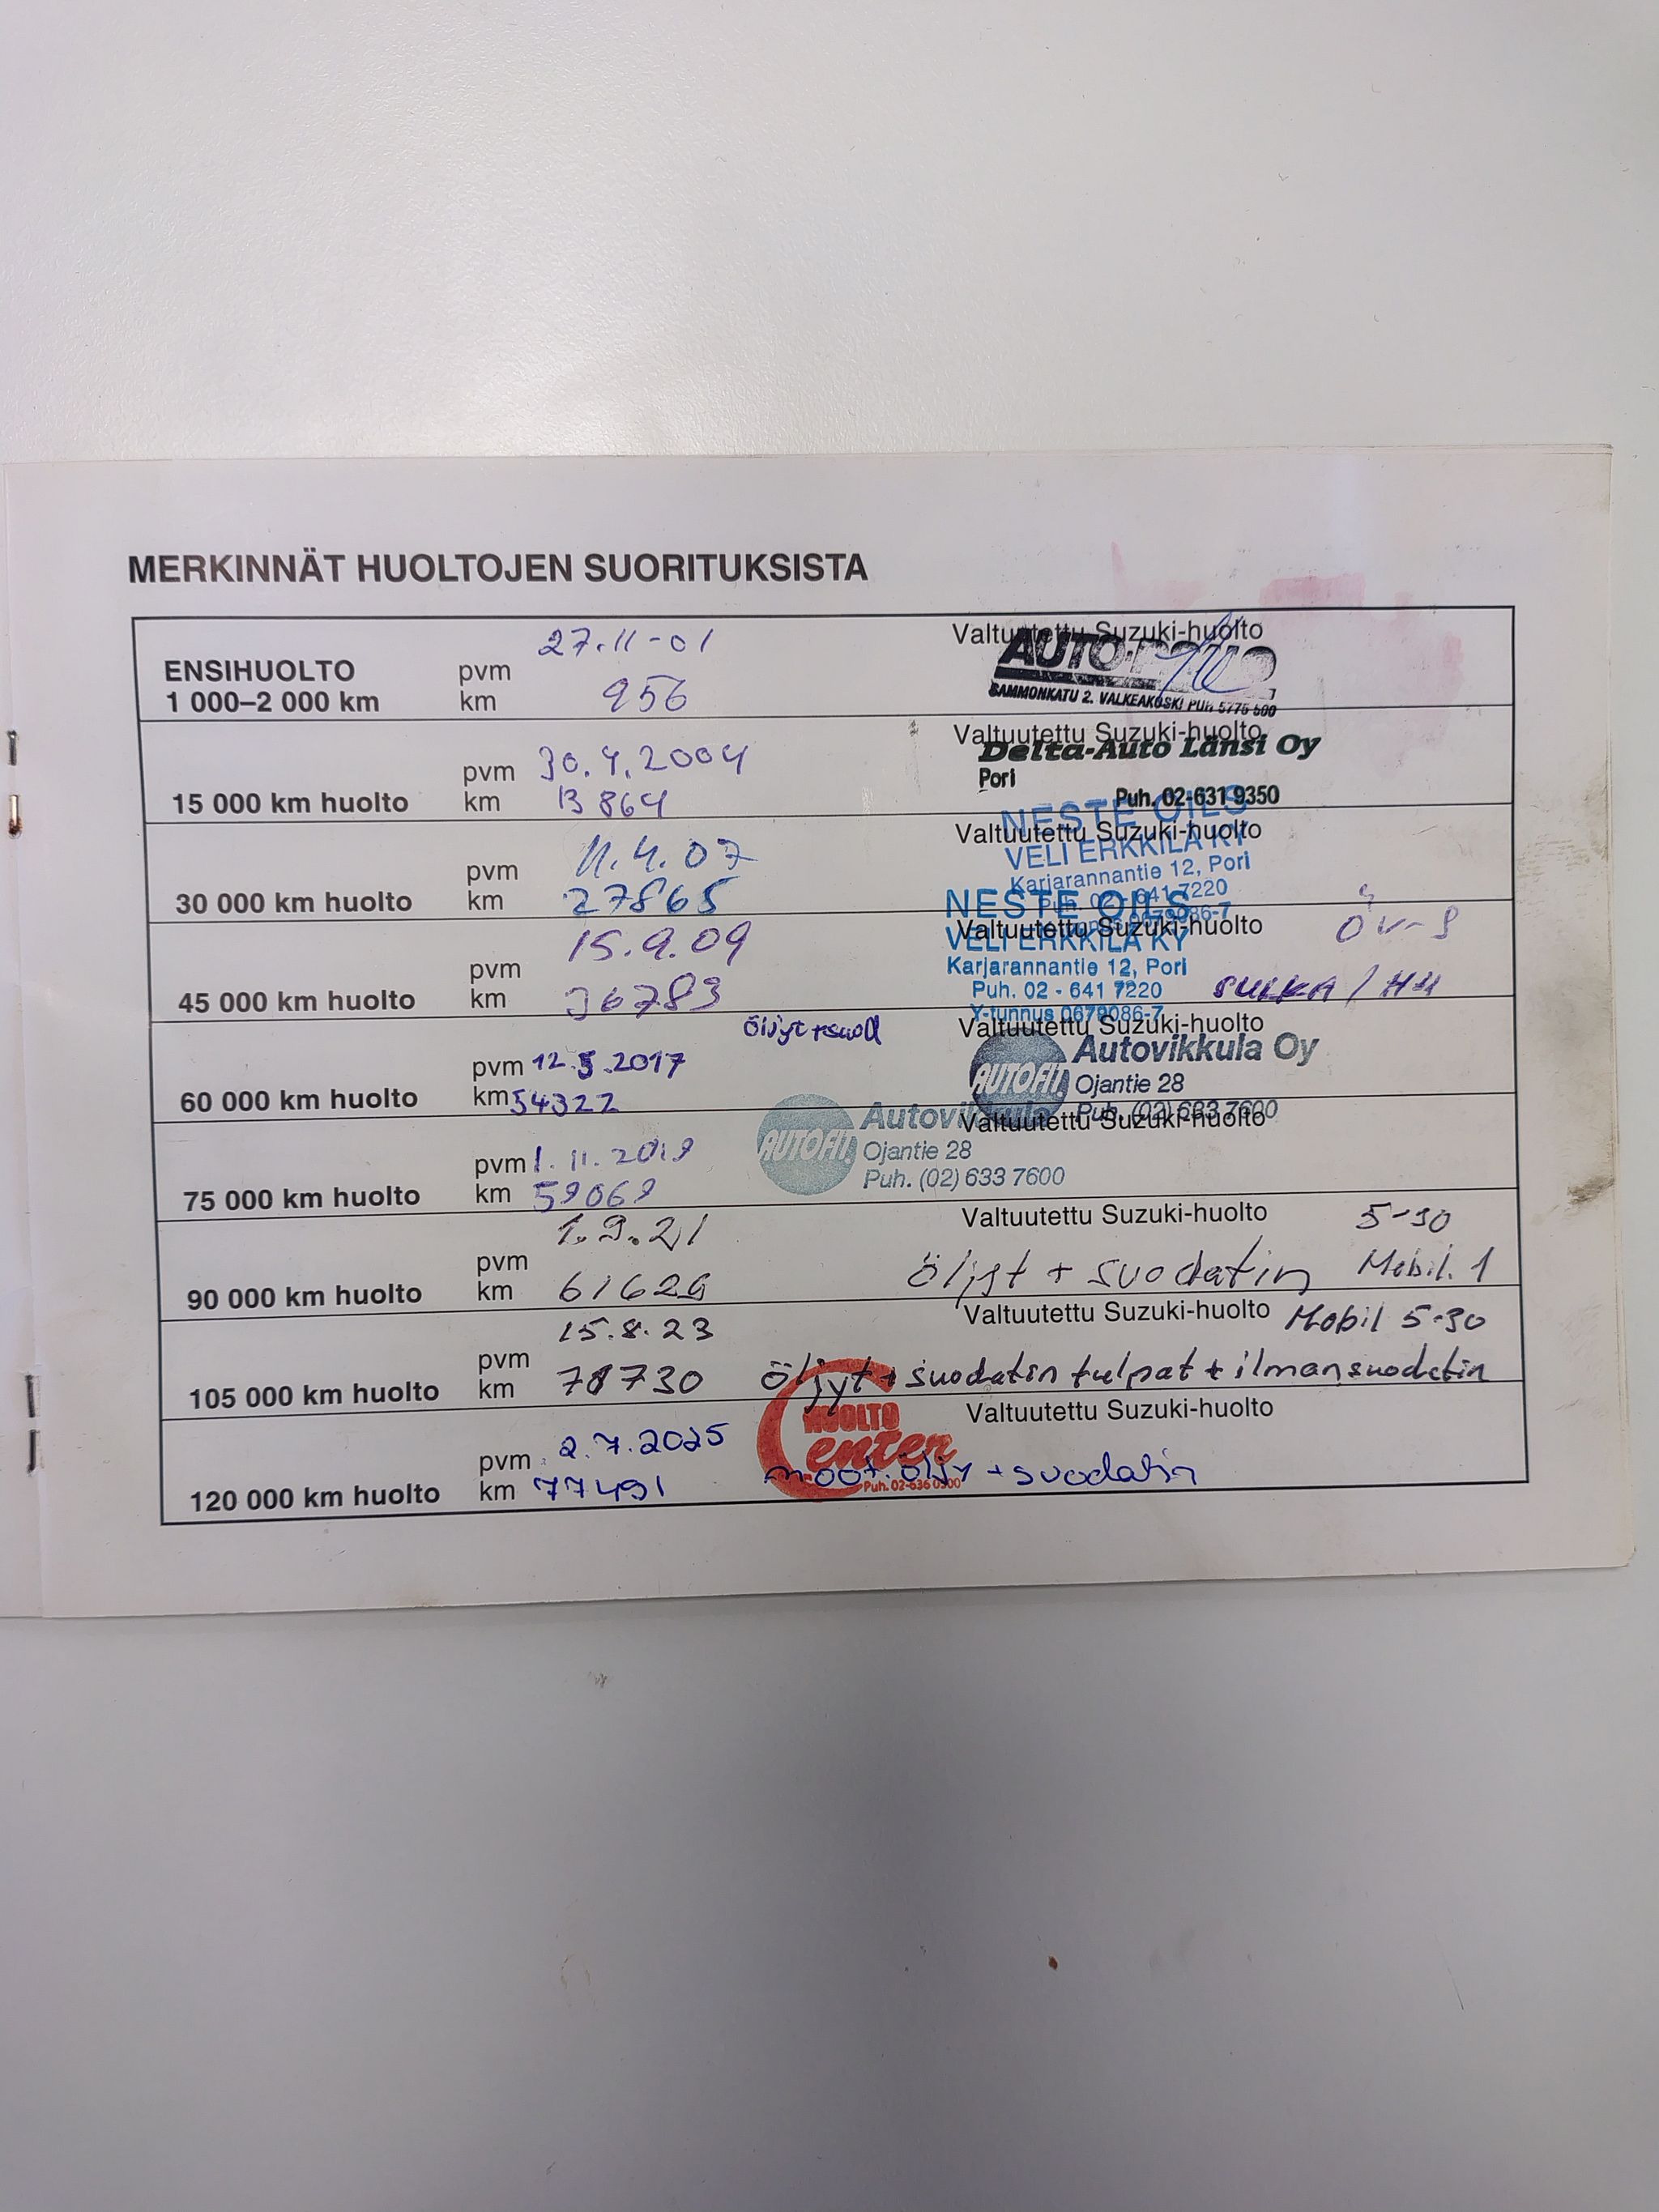 MERKINNÄT HUOLTOJEN SUORITUKSISTA
27.11-01
Valtuutettu Suzuki-huolto
ENSIHUOLTO
pvm
1 000–2 000 km
km
956
SAMMONKATU 2. VALKEAKOSKI PUH 5775 500
Valtuutettu Suzuki-huolto
Delta-Auto Länsi Oy
Pori
Puh. 02-631 9350
pvm 30.4.2004
15 000 km huolto
km 13864
NESTE OILS
Valtuutettu Suzuki-huolto
VELI ERKKILÄ KY
Karjarannantie 12, Pori
pvm 11.4.07
30 000 km huolto
km 27865
NESTE OILS
Valtuutettu Suzuki-huolto
VELI ERKKILÄ KY
Karjarannantie 12, Pori
Puh. 02 - 641 7220
Y-tunnus 0679086-7
pvm 15.9.09
45 000 km huolto
km 36783
Öljyt+suod
Valtuutettu Suzuki-huolto
AUTOFIT
Autovikkula Oy
Ojantie 28
Puh. (02) 633 7600
pvm 12.5.2017
60 000 km huolto
km 54322
Valtuutettu Suzuki-huolto
AUTOFIT
Autovikkula
Ojantie 28
Puh. (02) 633 7600
pvm 1.11.2019
75 000 km huolto
km 59069
1.9.21
Valtuutettu Suzuki-huolto
5-30
pvm
öljyt + suodatin Mobil. 1
90 000 km huolto
km
15.8.23
Valtuutettu Suzuki-huolto Mobil 5-30
pvm
105 000 km huolto
km
öljyt + suodatin tulpat + ilmansuodatin
Valtuutettu Suzuki-huolto
HUOLTO
Center
Puh. 02-636 0500
pvm 2.7.2025
120 000 km huolto
km 77491
moot.öljy + suodatin